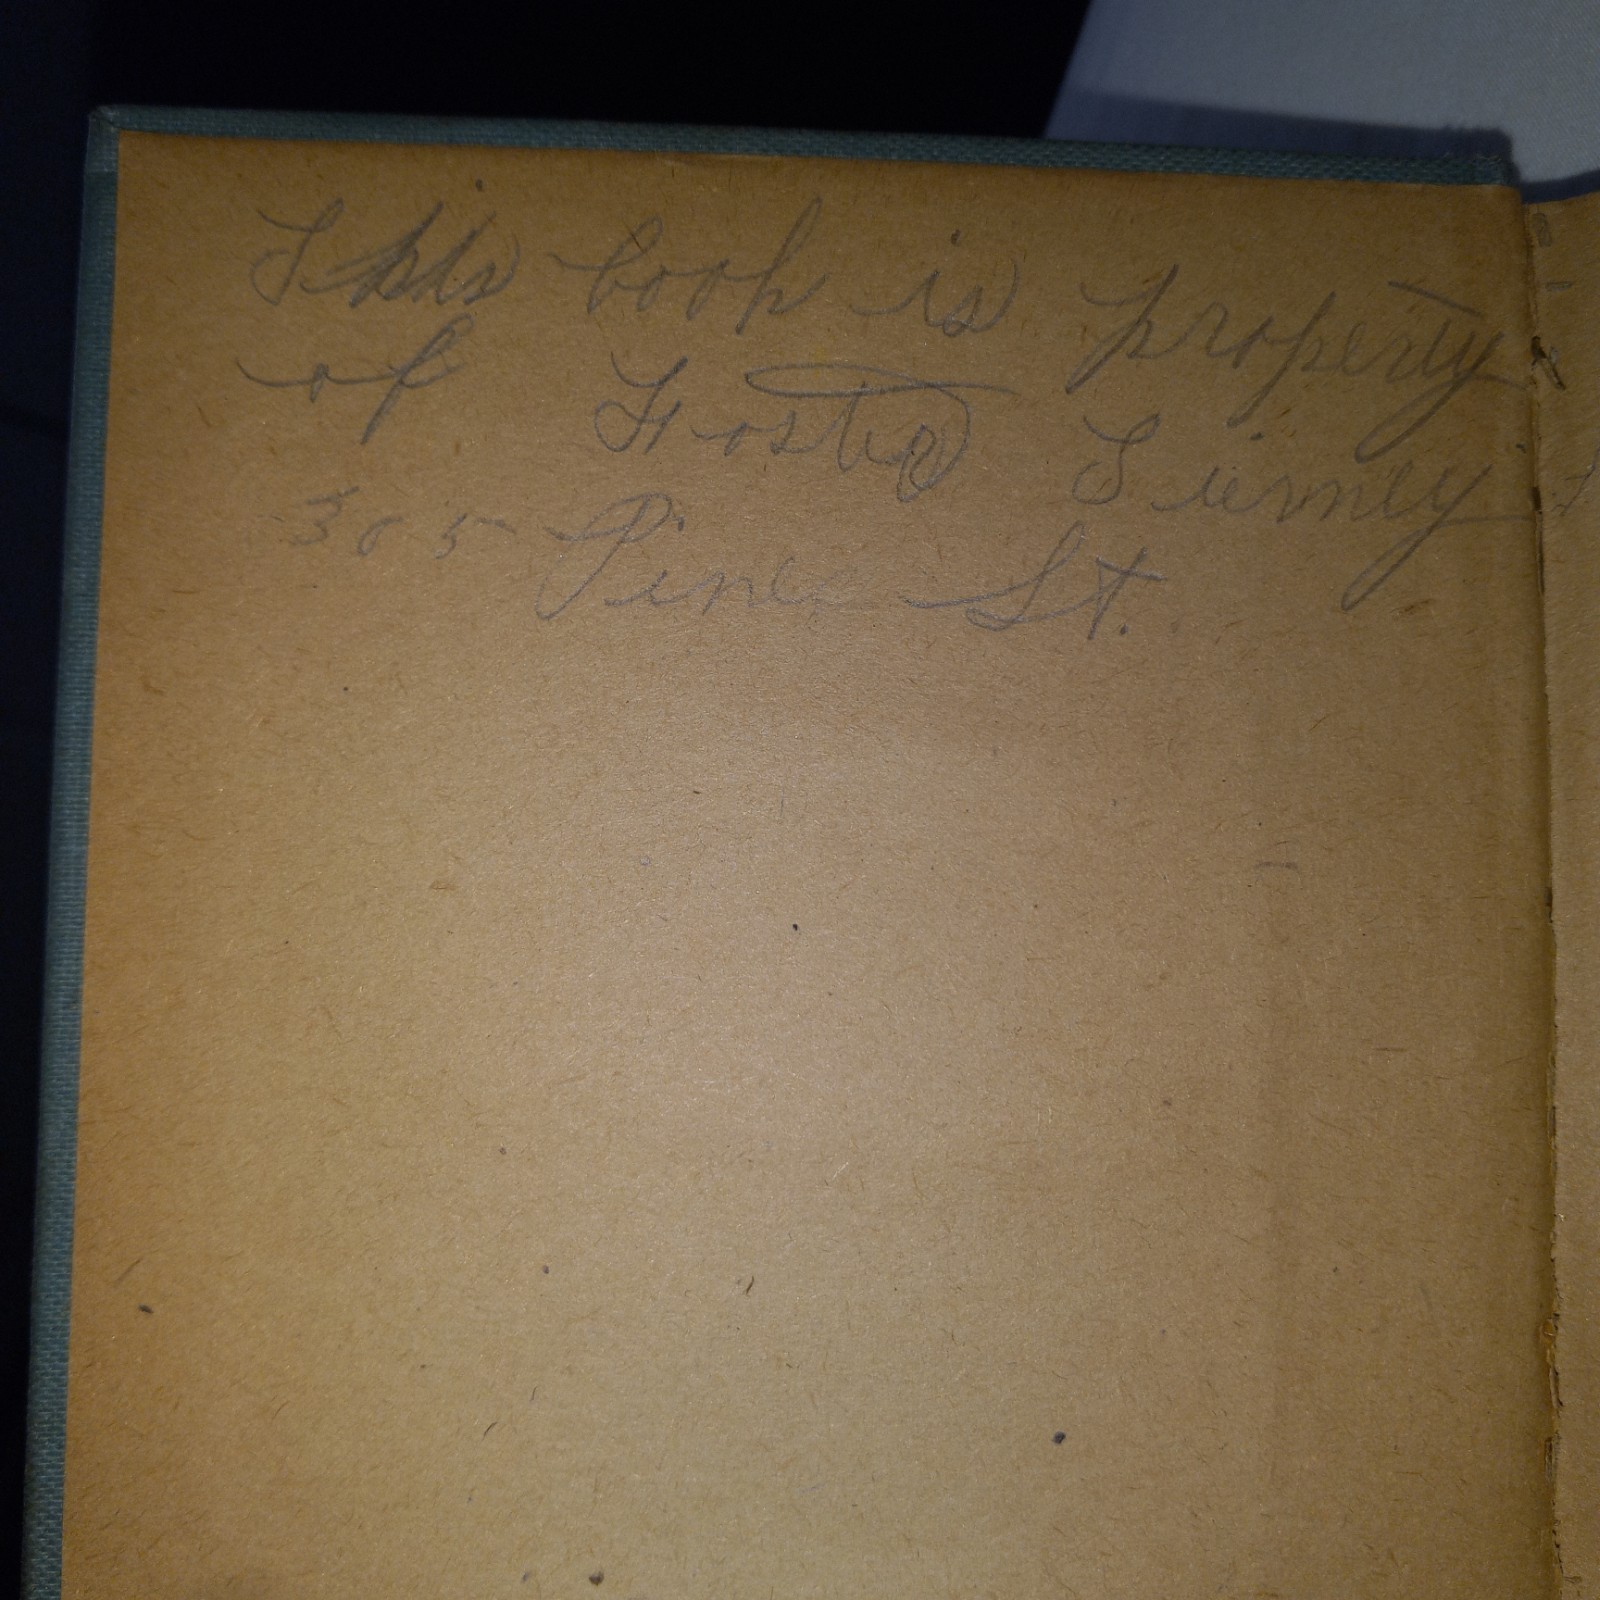 This book is property
of Foster Tierney
305 Pine St.